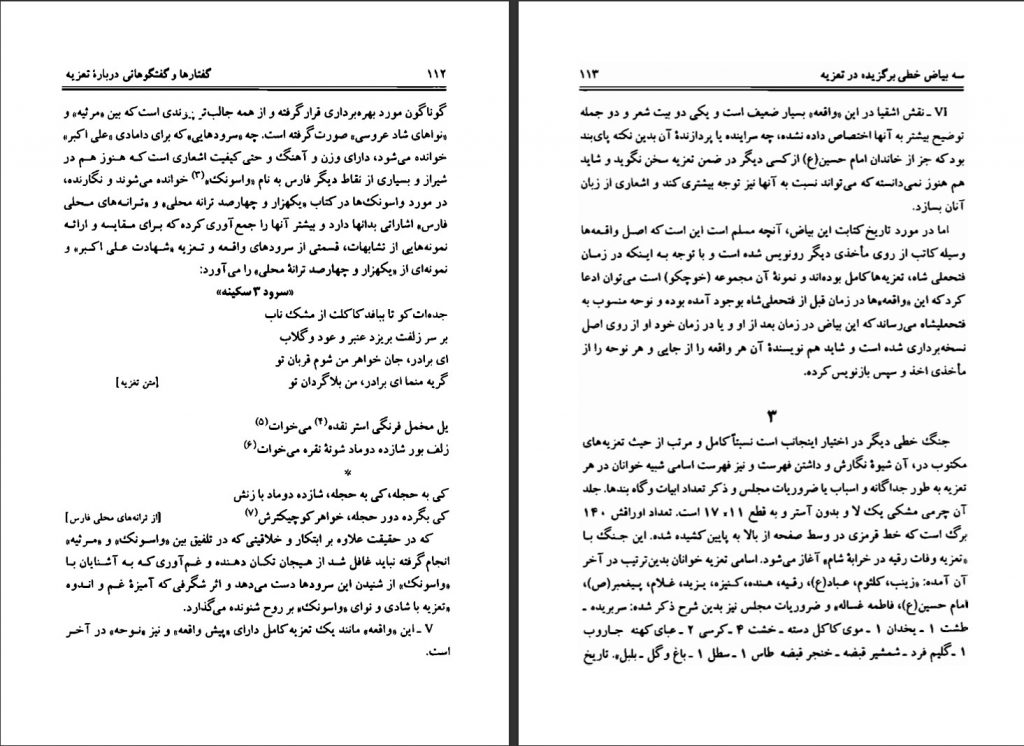 ۱۱۲ گفتارها و گفتگوهائی دربارهٔ تعزیه
گوناگون مورد بهره‌برداری قرار گرفته و از همه جالب‌تر پیوندی است که بین «مرثیه» و
«نواهای شاد عروسی» صورت گرفته است. چه «سرودهایی» که برای دامادی «علی اکبر»
خوانده می‌شود، دارای وزن و آهنگ و حتی کیفیت اشعاری است که هنوز هم در
شیراز و بسیاری از نقاط دیگر فارس به نام «واسونک»(۳) خوانده می‌شوند و نگارنده،
در مورد واسونک‌ها در کتاب «یکهزار و چهارصد ترانه محلی» و «ترانه‌های محلی
فارس» اشاراتی بدانها دارد و بیشتر آنها را جمع‌آوری کرده که برای مقایسه و ارائه
نمونه‌هایی از تشابهات، قسمتی از سرودهای واقعه و تعزیه «شهادت علی اکبر» و
نمونه‌ای از «یکهزار و چهارصد ترانهٔ محلی» را می‌آورد:
«سرود ۳ سکینه»
جده‌ات کو تا ببافد کاکلت از مشک ناب
بر سر زلفت بریزد عنبر و عود و گلاب
ای برادر، جان خواهر من شوم قربان تو
گریه منما ای برادر، من بلاگردان تو [متن تعزیه]
یل مخمل فرنگی استر نقده(۴) می‌خوات(۵)
زلف بور شازده دوماد شونهٔ نقره می‌خوات(۶)
*
کی به حجله، کی به حجله، شازده دوماد با زنش
کی بگرده دور حجله، خواهر کوچیکترش(۷) [از ترانه‌های محلی فارس]
که در حقیقت علاوه بر ابتکار و خلاقیتی که در تلفیق بین «واسونک» و «مرثیه»
انجام گرفته نباید غافل شد از هیجان تکان دهنده و غم‌آوری که به آشنایان با
«واسونک» از شنیدن این سرودها دست می‌دهد و اثر شگرفی که آمیزهٔ غم و اندوه
«تعزیه با شادی و نوای «واسونک» بر روح شنونده می‌گذارد.
V ـ این «واقعه» مانند یک تعزیه کامل دارای «پیش واقعه» و نیز «نوحه» در آخر
است.
سه بیاض خطی برگزیده در تعزیه ۱۱۳
VI ـ نقش اشقیا در این «واقعه» بسیار ضعیف است و یکی دو بیت شعر و دو جمله
توضیح بیشتر به آنها اختصاص داده نشده، چه سراینده یا پردازندهٔ آن بدین نکته پای‌بند
بود که جز از خاندان امام حسین(ع) از کسی دیگر در ضمن تعزیه سخن نگوید و شاید
هم هنوز نمی‌دانسته که می‌تواند نسبت به آنها نیز توجه بیشتری کند و اشعاری از زبان
آنان بسازد.
اما در مورد تاریخ کتابت این بیاض، آنچه مسلم است این است که اصل واقعه‌ها
وسیله کاتب از روی مأخذی دیگر رونویس شده است و با توجه به اینکه در زمان
فتحعلی شاه، تعزیه‌ها کامل بوده‌اند و نمونهٔ آن مجموعه (خوچکو) است می‌توان ادعا
کرد که این «واقعه»ها در زمان قبل از فتحعلی‌شاه بوجود آمده بوده و نوحه منسوب به
فتحعلیشاه می‌رساند که این بیاض در زمان بعد از او و یا در زمان خود او از روی اصل
نسخه‌برداری شده است و شاید هم نویسندهٔ آن هر واقعه را از جایی و هر نوحه را از
مأخذی اخذ و سپس بازنویس کرده.
۳
جنگ خطی دیگر در اختیار اینجانب است نسبتاً کامل و مرتب از حیث تعزیه‌های
مکتوب در، آن شیوهٔ نگارش و داشتن فهرست و نیز فهرست اسامی شبیه خوانان در هر
تعزیه به طور جداگانه و اسباب یا ضروریات مجلس و ذکر تعداد ابیات وگاه بندها. جلد
آن چرمی مشکی یک لا و بدون آستر و به قطع ۱۱×۱۷ است. تعداد اوراقش ۱۴۰
برگ است که خط قرمزی در وسط صفحه از بالا به پایین کشیده شده. این جنگ با
«تعزیه وفات رقیه در خرابهٔ شام» آغاز می‌شود. اسامی تعزیه خوانان بدین ترتیب در آخر
آن آمده: «زینب، کلثوم، عباد(ع)، رقیه، هنده، کنیزه، یزید، غلام، پیغمبر(ص)،
امام حسین(ع)، فاطمه غساله» و ضروریات مجلس نیز بدین شرح ذکر شده: سربریده ـ
طشت ۱ ـ یخدان ۱ ـ موی کاکل دسته ـ خشت ۴ ـ کرسی ۲ ـ عبای کهنه جاروب
۱ ـ گلیم فرد ـ شمشیر قبضه ـ خنجر قبضه طاس ۱ ـ سطل ۱ ـ باغ وگل ـ بلبل». تاریخ